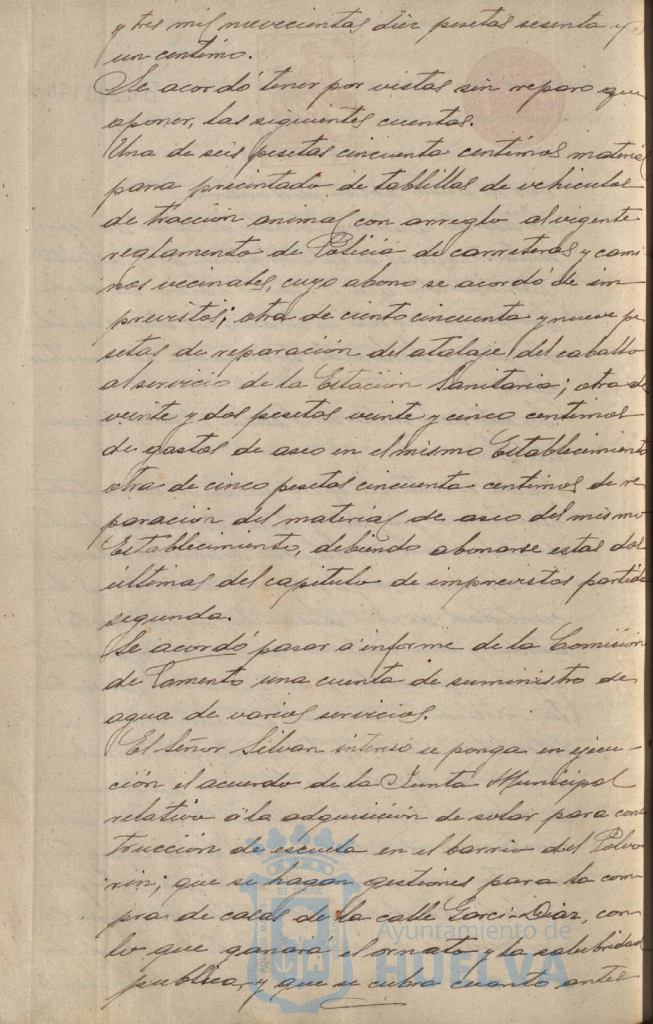 y tres mil novecientas diez pesetas sesenta y
un centimo.
Se acordó tener por vistas sin reparo que
oponer, las siguientes cuentas.
Una de seis pesetas cincuenta centimos material
para precintado de tablillas de vehiculos
de tracción animal con arreglo al vigente
reglamento de Policia de carreteras y cami
nos vecinales, cuyo abono se acordó de im
previstos; otra de ciento cincuenta y nueve pe
setas de reparación del atalaje del caballo
al servicio de la Estación Sanitaria; otra de
veinte y dos pesetas veinte y cinco centimos
de gastos de aseo en el mismo Establecimiento
otra de cinco pesetas cincuenta centimos de re
paración del material de aseo del mismo
Establecimiento, debiendo abonarse estas dos
últimas del capitulo de imprevistos partida
segunda.
Se acordó pasar a informe de la Comisión
de Fomento una cuenta de suministro de
agua de varios servicios.
El Señor Silvan interesó se ponga en ejecu-
ción el acuerdo de la Junta Municipal
relativo a la adquisición de solar para cons
trucción de escuela en el barrio del Polvo
rin; que se hagan gestiones para la com
pra de casas de la calle Garci-Diaz, con
lo que ganará el ornato y la salubridad
publica, y que se cubra cuanto antes
Ayuntamiento de
HUELVA